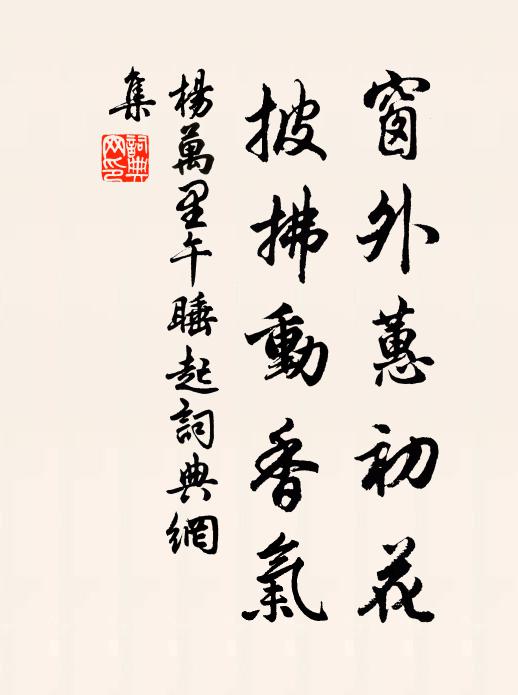 窗外蕙初花
披拂動香氣
楊萬里午睡起詞典網
集
詞典
网印